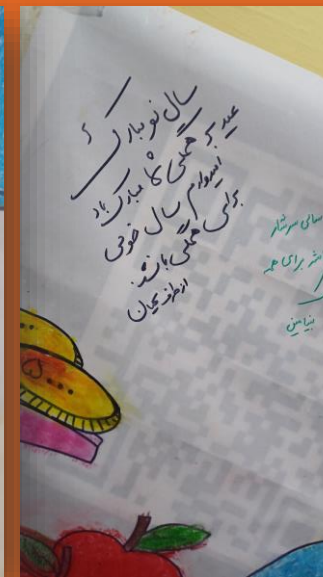 سال نو مبارک
عید بر همگی مبارک باد
امیدوارم سال خوبی
برای همگی باشد
از طرف کیان
سالی سرشار
برای همه
بنیامین